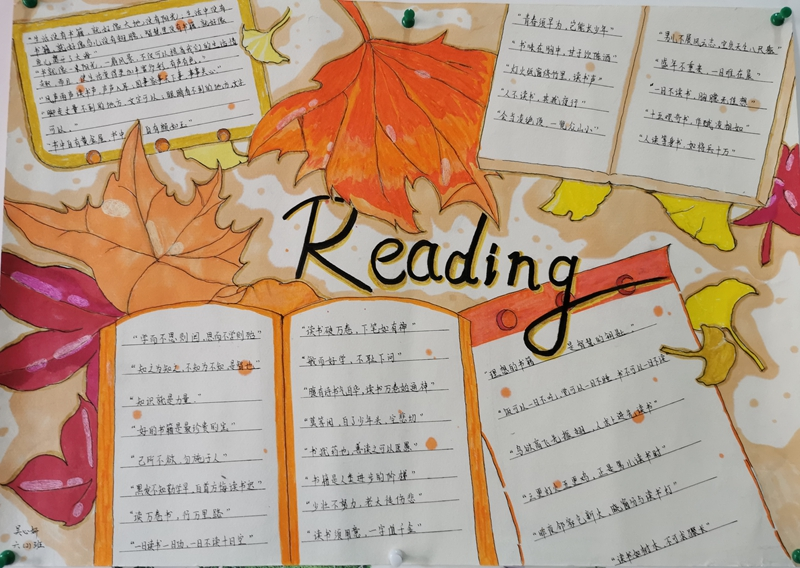 "生活没有书籍，就好像大地没有阳光；生活中没有
书籍，就好像鸟儿没有翅膀；智慧里没有书籍，就好像
"风声雨声读书声，声声入耳；国事家事天下事，事事关心"
可以。"
"书中自有黄金屋，书中自有颜如玉。"
"青春须早为，岂能长少年"
"书味在胸中，甘于饮陈酒"
"灯火纸窗修竹里，读书声"
"人不读书，其犹夜行"
"会当凌绝顶，一览众山小"
"男儿不展风云志，空负天生八尺躯"
"盛年不重来，一日难再晨"
"一日不读书，胸臆无佳想"
"人读等身书，如将兵十万"
Reading
"学而不思则罔，思而不学则殆"
"知之为知之，不知为不知，是智也"
"知识就是力量"
"好的书籍是最珍贵的宝"
"己所不欲，勿施于人"
"黑发不知勤学早，白首方悔读书迟"
"读万卷书，行万里路"
"一日读书一日功，一日不读十日空"
"读书破万卷，下笔如有神"
"敏而好学，不耻下问"
"腹有诗书气自华，读书万卷始通神"
"莫等闲，白了少年头，空悲切"
"书犹药也，善读之可以医愚"
"书籍是人类进步的阶梯"
"少壮不努力，老大徒伤悲"
"读书须用意，一字值千金"
"理想的书籍 是智慧的钥匙"
"鸟欲高飞先振翅，人求上进先读书"
"三更灯火五更鸡，正是男儿读书时"
"昨夜邻家乞新火，晓窗分与读书灯"
六四班